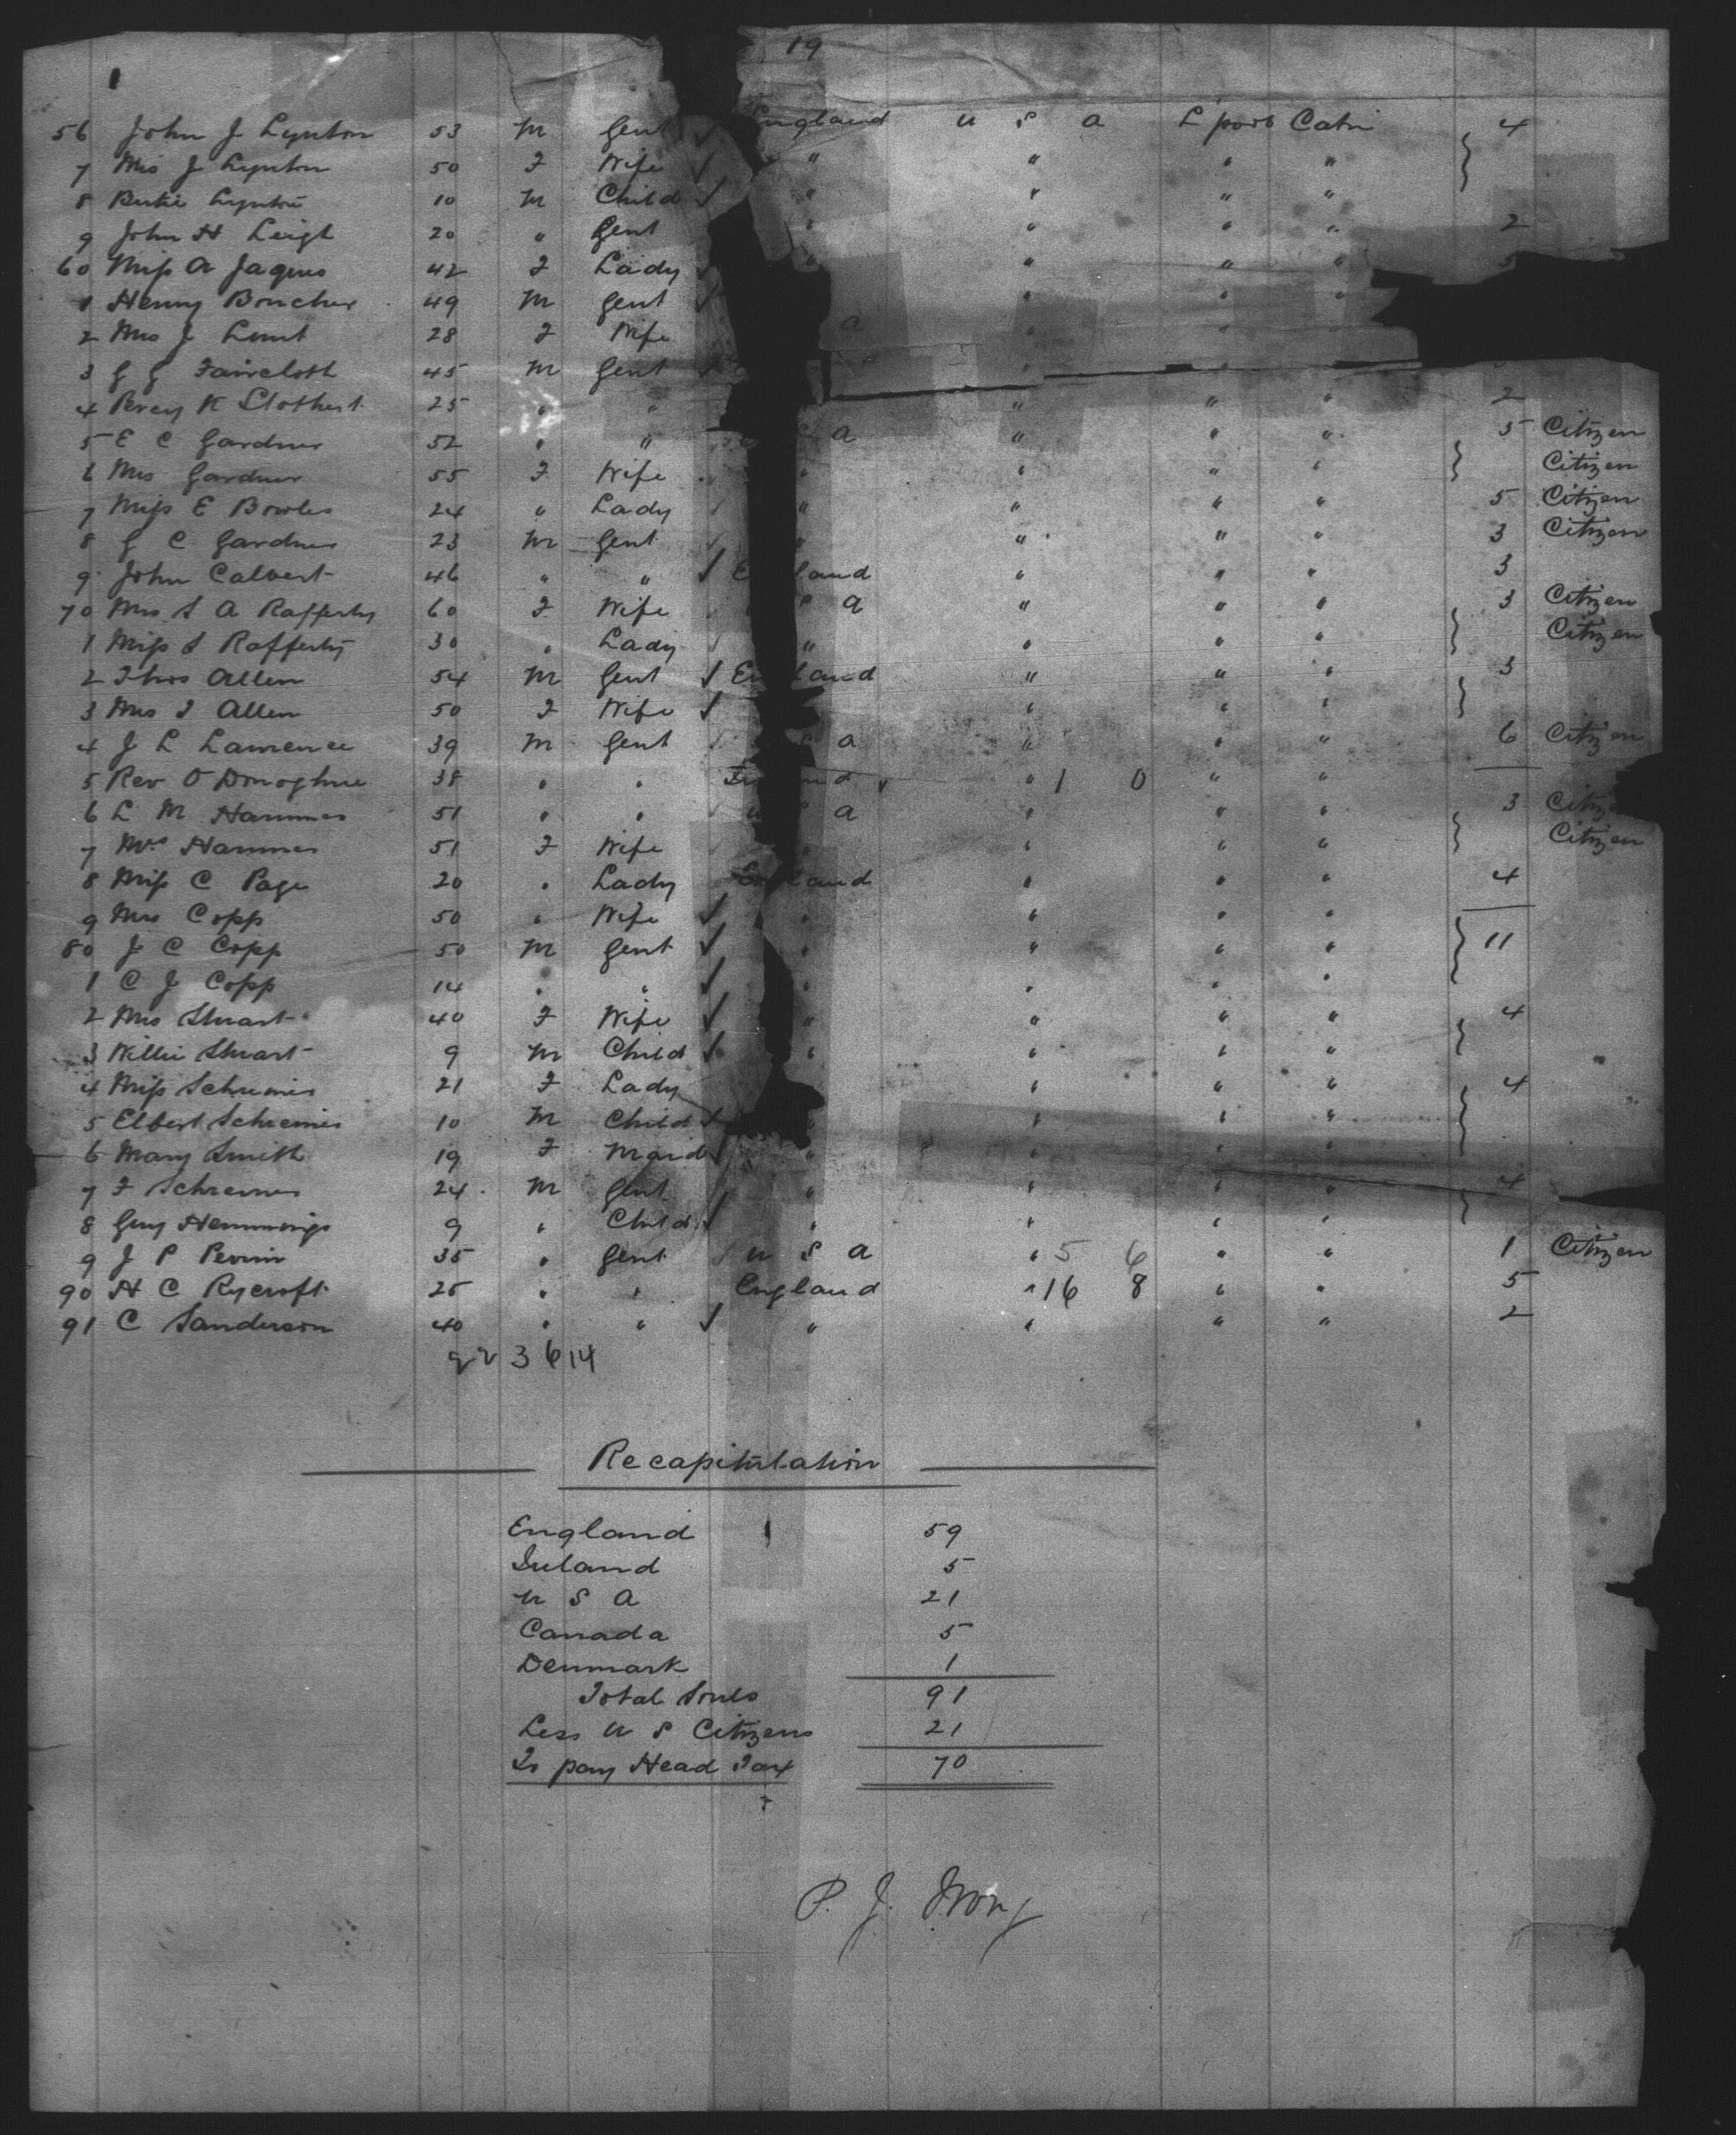 19
56 John J Lynton 53 M Gent ✓ England U S A L'pool Cabin 4
7 Mrs J Lynton 50 F Wife ✓ " " " "
8 Lynton 10 M Child ✓ " " " "
9 John H Leigh 20 " Gent " " " " 2
60 Miss A Jaques 42 F Lady ✓ " " " " 5
1 Henry Boucher 49 M Gent ✓ " " "
2 Mrs J Lunt 28 F Wife a " " "
3 G G Faircloth 45 M Gent ✓ "
4 Percy K Slothert 25 " " " " " 2
5 E C Gardner 52 " " S A " " " 5 Citizen
6 Mrs Gardner 55 F Wife " " " " Citizen
7 Miss E Bowles 24 " Lady ✓ " " " " 5 Citizen
8 G C Gardner 23 M Gent ✓ " " " " 3 Citizen
9 John Calvert 46 " " ✓ E land " " " 3
70 Mrs S A Rafferty 60 F Wife ✓ S A " " " 3 Citizen
1 Miss S Rafferty 30 " Lady ✓ " " " " Citizen
2 Thos Allen 54 M Gent ✓ En land " " " 3
3 Mrs T Allen 50 F Wife ✓ " " "
4 J L Lawrence 39 M Gent ✓ S A " " " 6 Citizen
5 Rev O Donoghue 38 " " nd " 1 0 " "
6 L M Hammer 51 " " ✓ U S A " " " 3 Citiz
7 Mrs Hammer 51 F Wife ✓ " " " " Citizen
8 Miss C Page 20 " Lady En land " " " 4
9 Mrs Copp 50 " Wife ✓ " " " "
80 J C Copp 50 M Gent ✓ " " " " 11
1 C J Copp 14 " " ✓ " " " "
2 Mrs Stuart 40 F Wife ✓ " " " " 4
3 Willie Stuart 9 M Child ✓ " " " "
4 Miss Schreiner 21 F Lady " " " 4
5 Elbert Schreiner 10 M Child ✓ " " " "
6 Mary Smith 19 F Maid ✓ " " " "
7 F Schreiner 24 M Gent " " " " 4
8 Guy Hemmings 9 " Child ✓ " " " "
9 J P Perrin 35 " Gent ✓ U S A " 5 6 " " 1 Citizen
90 H C Rycroft 25 " " England " 16 8 " " 5
91 C Sanderson 40 " " ✓ " " " " 2
22 3 6 14
Recapitulation
England 59
Ireland 5
U S A 21
Canada 5
Denmark 1
Total Souls 91
Less U S Citizens 21
To pay Head Tax 70
P. J.